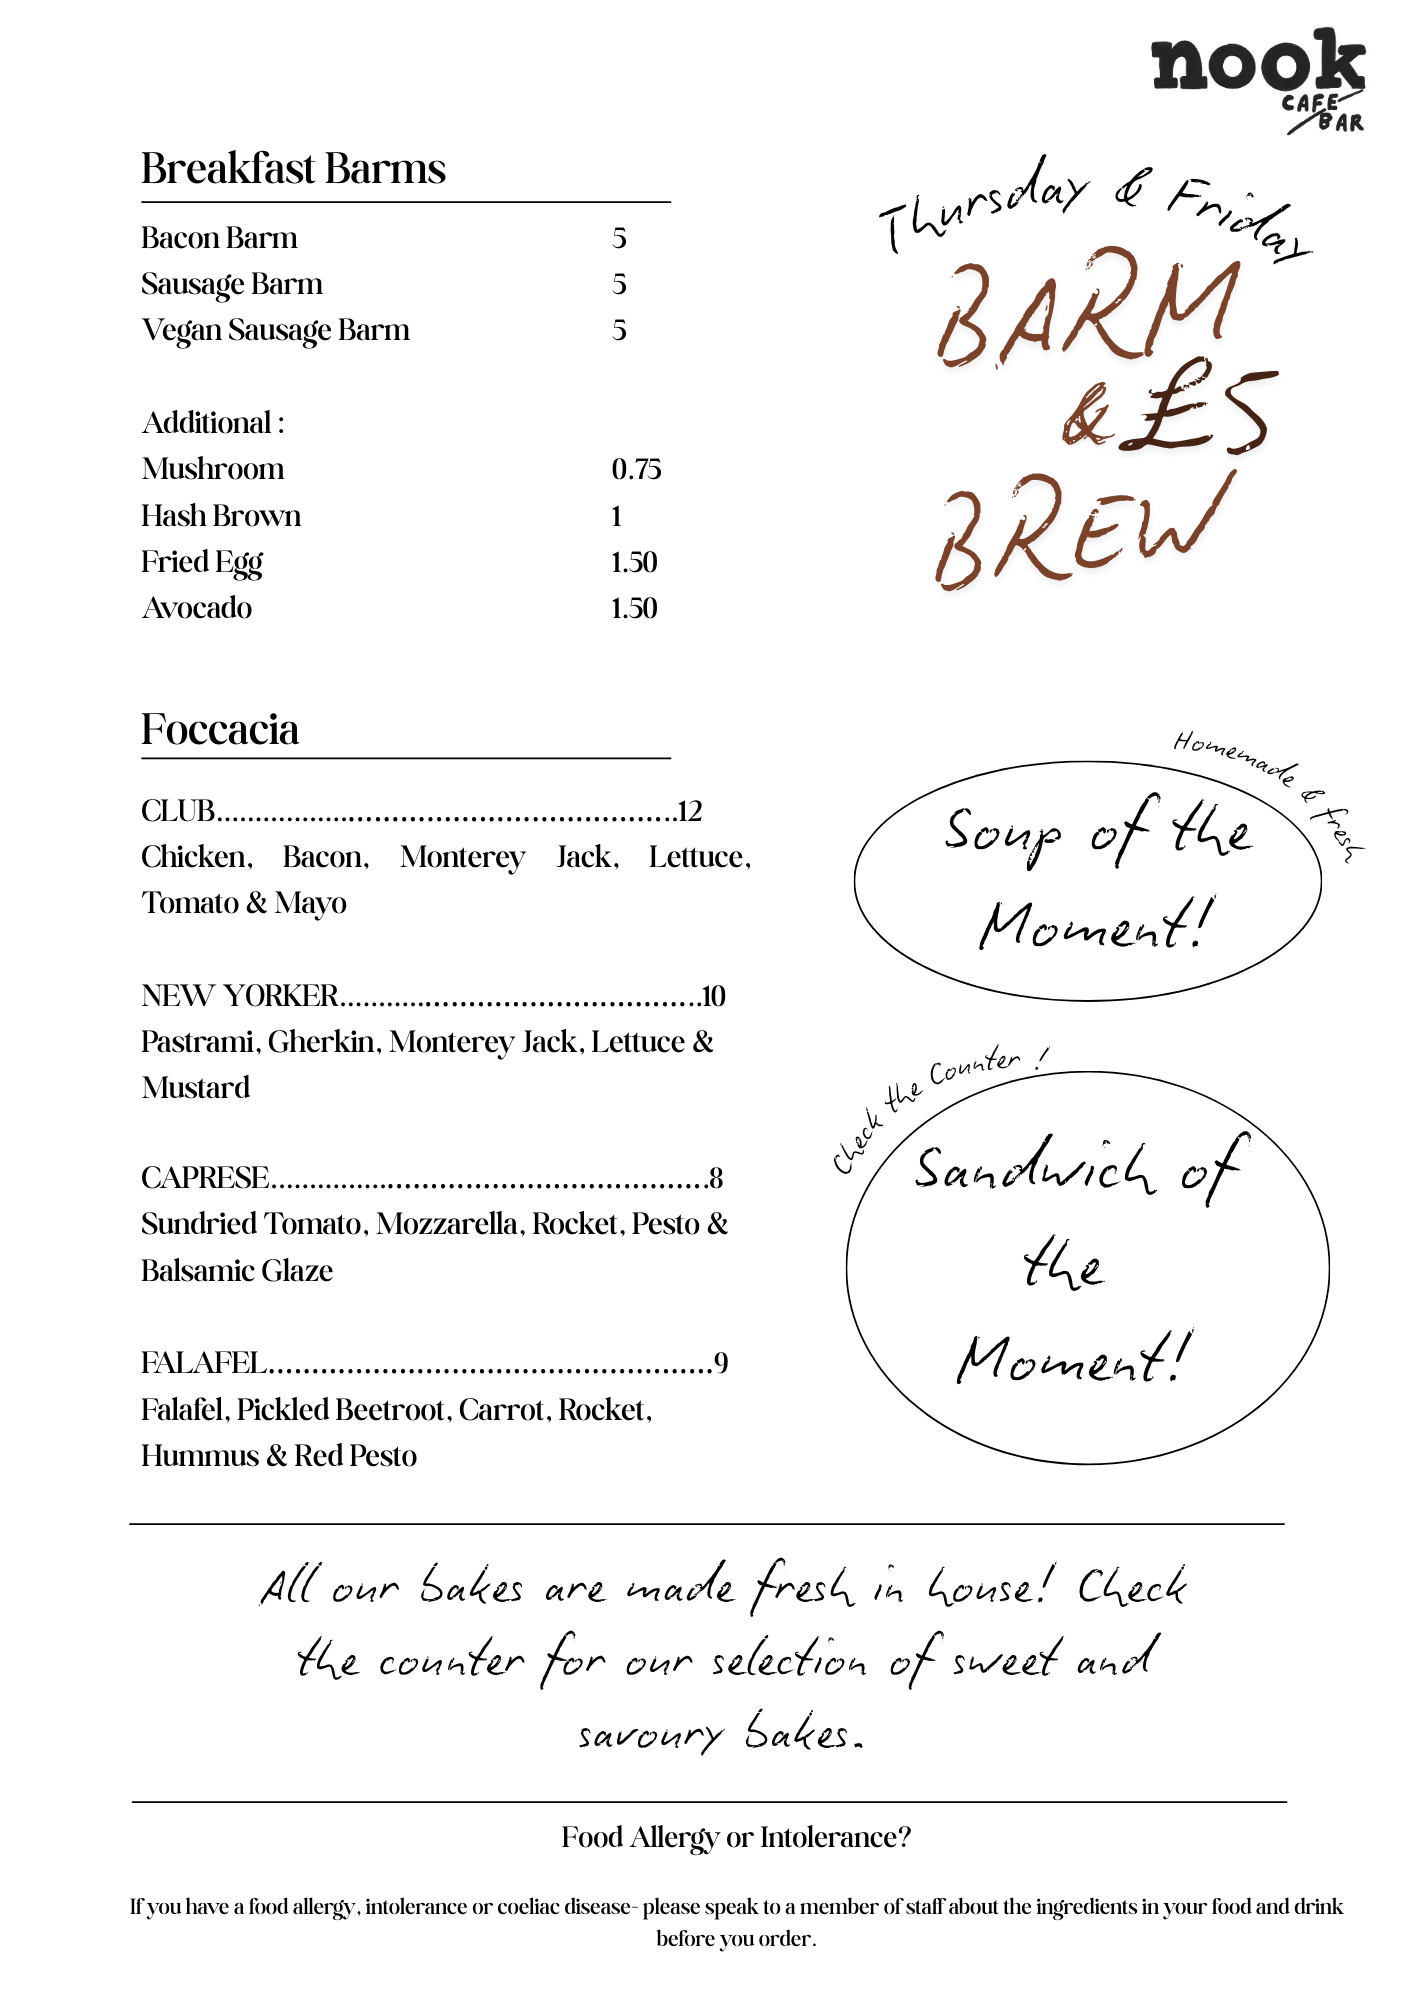 nook
CAFE
BAR
Breakfast Barms
Bacon Barm 5
Sausage Barm 5
Vegan Sausage Barm 5
Additional :
Mushroom 0.75
Hash Brown 1
Fried Egg 1.50
Avocado 1.50
Thursday & Friday
BARM
& £5
BREW
Foccacia
CLUB.....................................................12
Chicken, Bacon, Monterey Jack, Lettuce,
Tomato & Mayo
NEW YORKER..........................................10
Pastrami, Gherkin, Monterey Jack, Lettuce &
Mustard
CAPRESE..................................................8
Sundried Tomato, Mozzarella, Rocket, Pesto &
Balsamic Glaze
FALAFEL...................................................9
Falafel, Pickled Beetroot, Carrot, Rocket,
Hummus & Red Pesto
Homemade & fresh
Soup of the
Moment!
Check the Counter !
Sandwich of
the
Moment!
All our bakes are made fresh in house! Check
the counter for our selection of sweet and
savoury bakes.
Food Allergy or Intolerance?
If you have a food allergy, intolerance or coeliac disease- please speak to a member of staff about the ingredients in your food and drink
before you order.